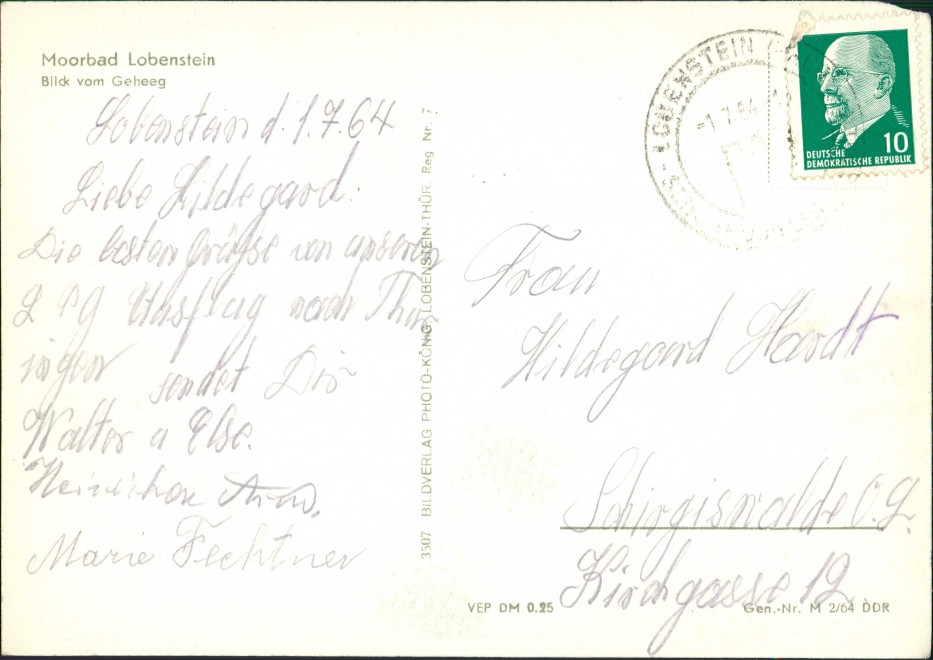 Moorbad Lobenstein
Blick vom Geheeg
Lobenstein d. 1.7.64
Liebe Hildegard.
Die besten Grüsse von unseren
L P G Ausflug nach Thü-
ringen
sendet Dir
Walter u Else.
Marie Fechtner
3507 BILDVERLAG PHOTO-KÖNIG, LOBENSTEIN-THÜR. Reg Nr. 7
LOBENSTEIN
-1.7.64
10
DEUTSCHE
DEMOKRATISCHE REPUBLIK
Frau
Hildegard Hardt
Schirgiswalde
Kirchgasse 12
VEP DM 0.25
Gen.-Nr. M 2/64 DDR